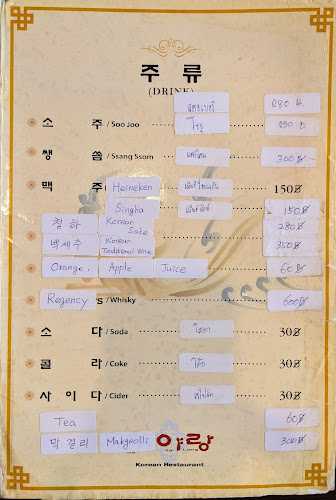 주 류
(DRINK)
280 ฿
소 주 / Soo Joo โซจู 250 ฿
쌩 쏨 / Ssang Ssom แสงโสม 300฿
맥 주 Heineken 150฿
Singha 150฿
청 하 Korean Sake 280฿
백세주 Korean Traditional Wine 350฿
Orange, Apple Juice 60฿
Regency 's / Whisky 600฿
소 다 / Soda โซดา 30฿
콜 라 / Coke โค้ก 30฿
사 이 다 / Cider สไปร์ท 30฿
Tea 60฿
막걸리 Makgeolli 야랑 300฿
Korean Restaurant